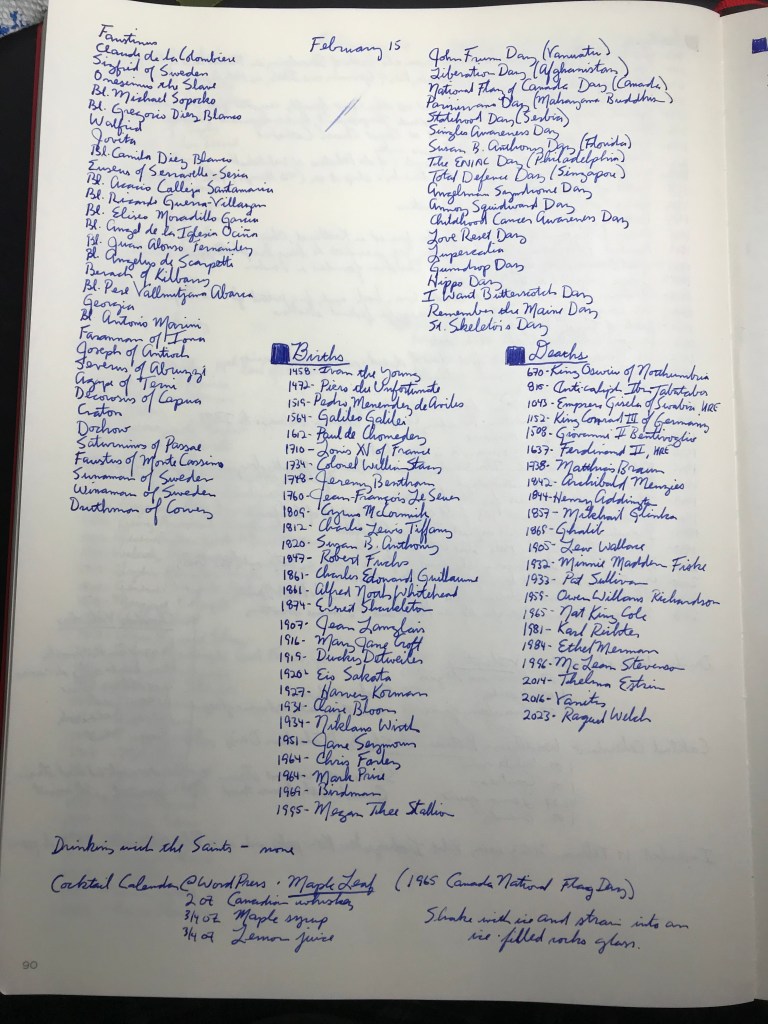 February 15
Faustinus
Claude de la Colombiere
Sigfrid of Sweden
Onesimus the Slave
Bl. Michael Sopocko
Bl. Gregorio Diez Blanco
Walfrid
Jovita
Bl. Camilo Diez Blanco
Euseus of Serravalle-Sesia
Bl. Acacio Calleja Santamaria
Bl. Ricardo Guerra-Villazan
Bl. Eliseo Moradillo Garcia
Bl. Angel de la Iglesia Ociña
Bl. Juan Alonso Fernandez
Bl. Angelus de Scarpetti
Berach of Kilbarry
Bl. Pere Vallmitjana Abarca
Georgia
Bl Antonio Marini
Farannan of Iona
Joseph of Antioch
Severus of Abruzzi
Agape of Terni
Decorosus of Capua
Craton
Dochow
Saturninus of Passae
Faustus of Monte Cassino
Sunaman of Sweden
Winaman of Sweden
Druthmar of Corvey
John Frum Day (Vanuatu)
Liberation Day (Afghanistan)
National Flag of Canada Day (Canada)
Parinirvana Day (Mahayana Buddhism)
Statehood Day (Serbia)
Singles Awareness Day
Susan B. Anthony Day (Florida)
The ENIAC Day (Philadelphia)
Total Defence Day (Singapore)
Angelman Syndrome Day
Annoy Squidward Day
Childhood Cancer Awareness Day
Love Reset Day
Lupercalia
Gumdrop Day
Hippo Day
I Want Butterscotch Day
Remember the Maine Day
St. Skeletor's Day
Births
1458- Ivan the Young
1472- Piero the Unfortunate
1519- Pedro Menendez de Aviles
1564- Galileo Galilei
1612- Paul de Chomedey
1710- Louis XV of France
1734- Colonel William Stacy
1748- Jeremy Bentham
1760- Jean-François Le Sueur
1809- Cyrus McCormick
1812- Charles Lewis Tiffany
1820- Susan B. Anthony
1847- Robert Fuchs
1861- Charles Edouard Guillaume
1861- Alfred North Whitehead
1874- Ernest Shackleton
1907- Jean Langlais
1916- Mary Jane Croft
1919- Ducky Detweiler
1920- Eio Sakata
1927- Harvey Korman
1931- Claire Bloom
1934- Niklaus Wirth
1951- Jane Seymour
1964- Chris Farley
1964- Mark Price
1969- Birdman
1995- Megan Thee Stallion
Deaths
670- King Oswiu of Northumbria
815- Anti caliph Ibn Tabataba
1043- Empress Gisela of Swabia HRE
1152- King Conrad III of Germany
1508- Giovanni II Bentivoglio
1637- Ferdinand II, HRE
1738- Matthias Braun
1842- Archibald Menzies
1844- Henry Addington
1857- Mikhail Glinka
1869- Ghalib
1905- Lew Wallace
1932- Minnie Maddern Fiske
1933- Pat Sullivan
1959- Owen Willans Richardson
1965- Nat King Cole
1981- Karl Richter
1984- Ethel Merman
1996- McLean Stevenson
2014- Thelma Estrin
2016- Vanity
2023- Raquel Welch
Drinking with the Saints - none
Cocktail Calendar @WordPress - Maple Leaf (1965 Canada National Flag Day)
2 oz Canadian whiskey
3/4 oz Maple syrup
3/4 oz Lemon juice
Shake with ice and strain into an
ice-filled rocks glass.
90